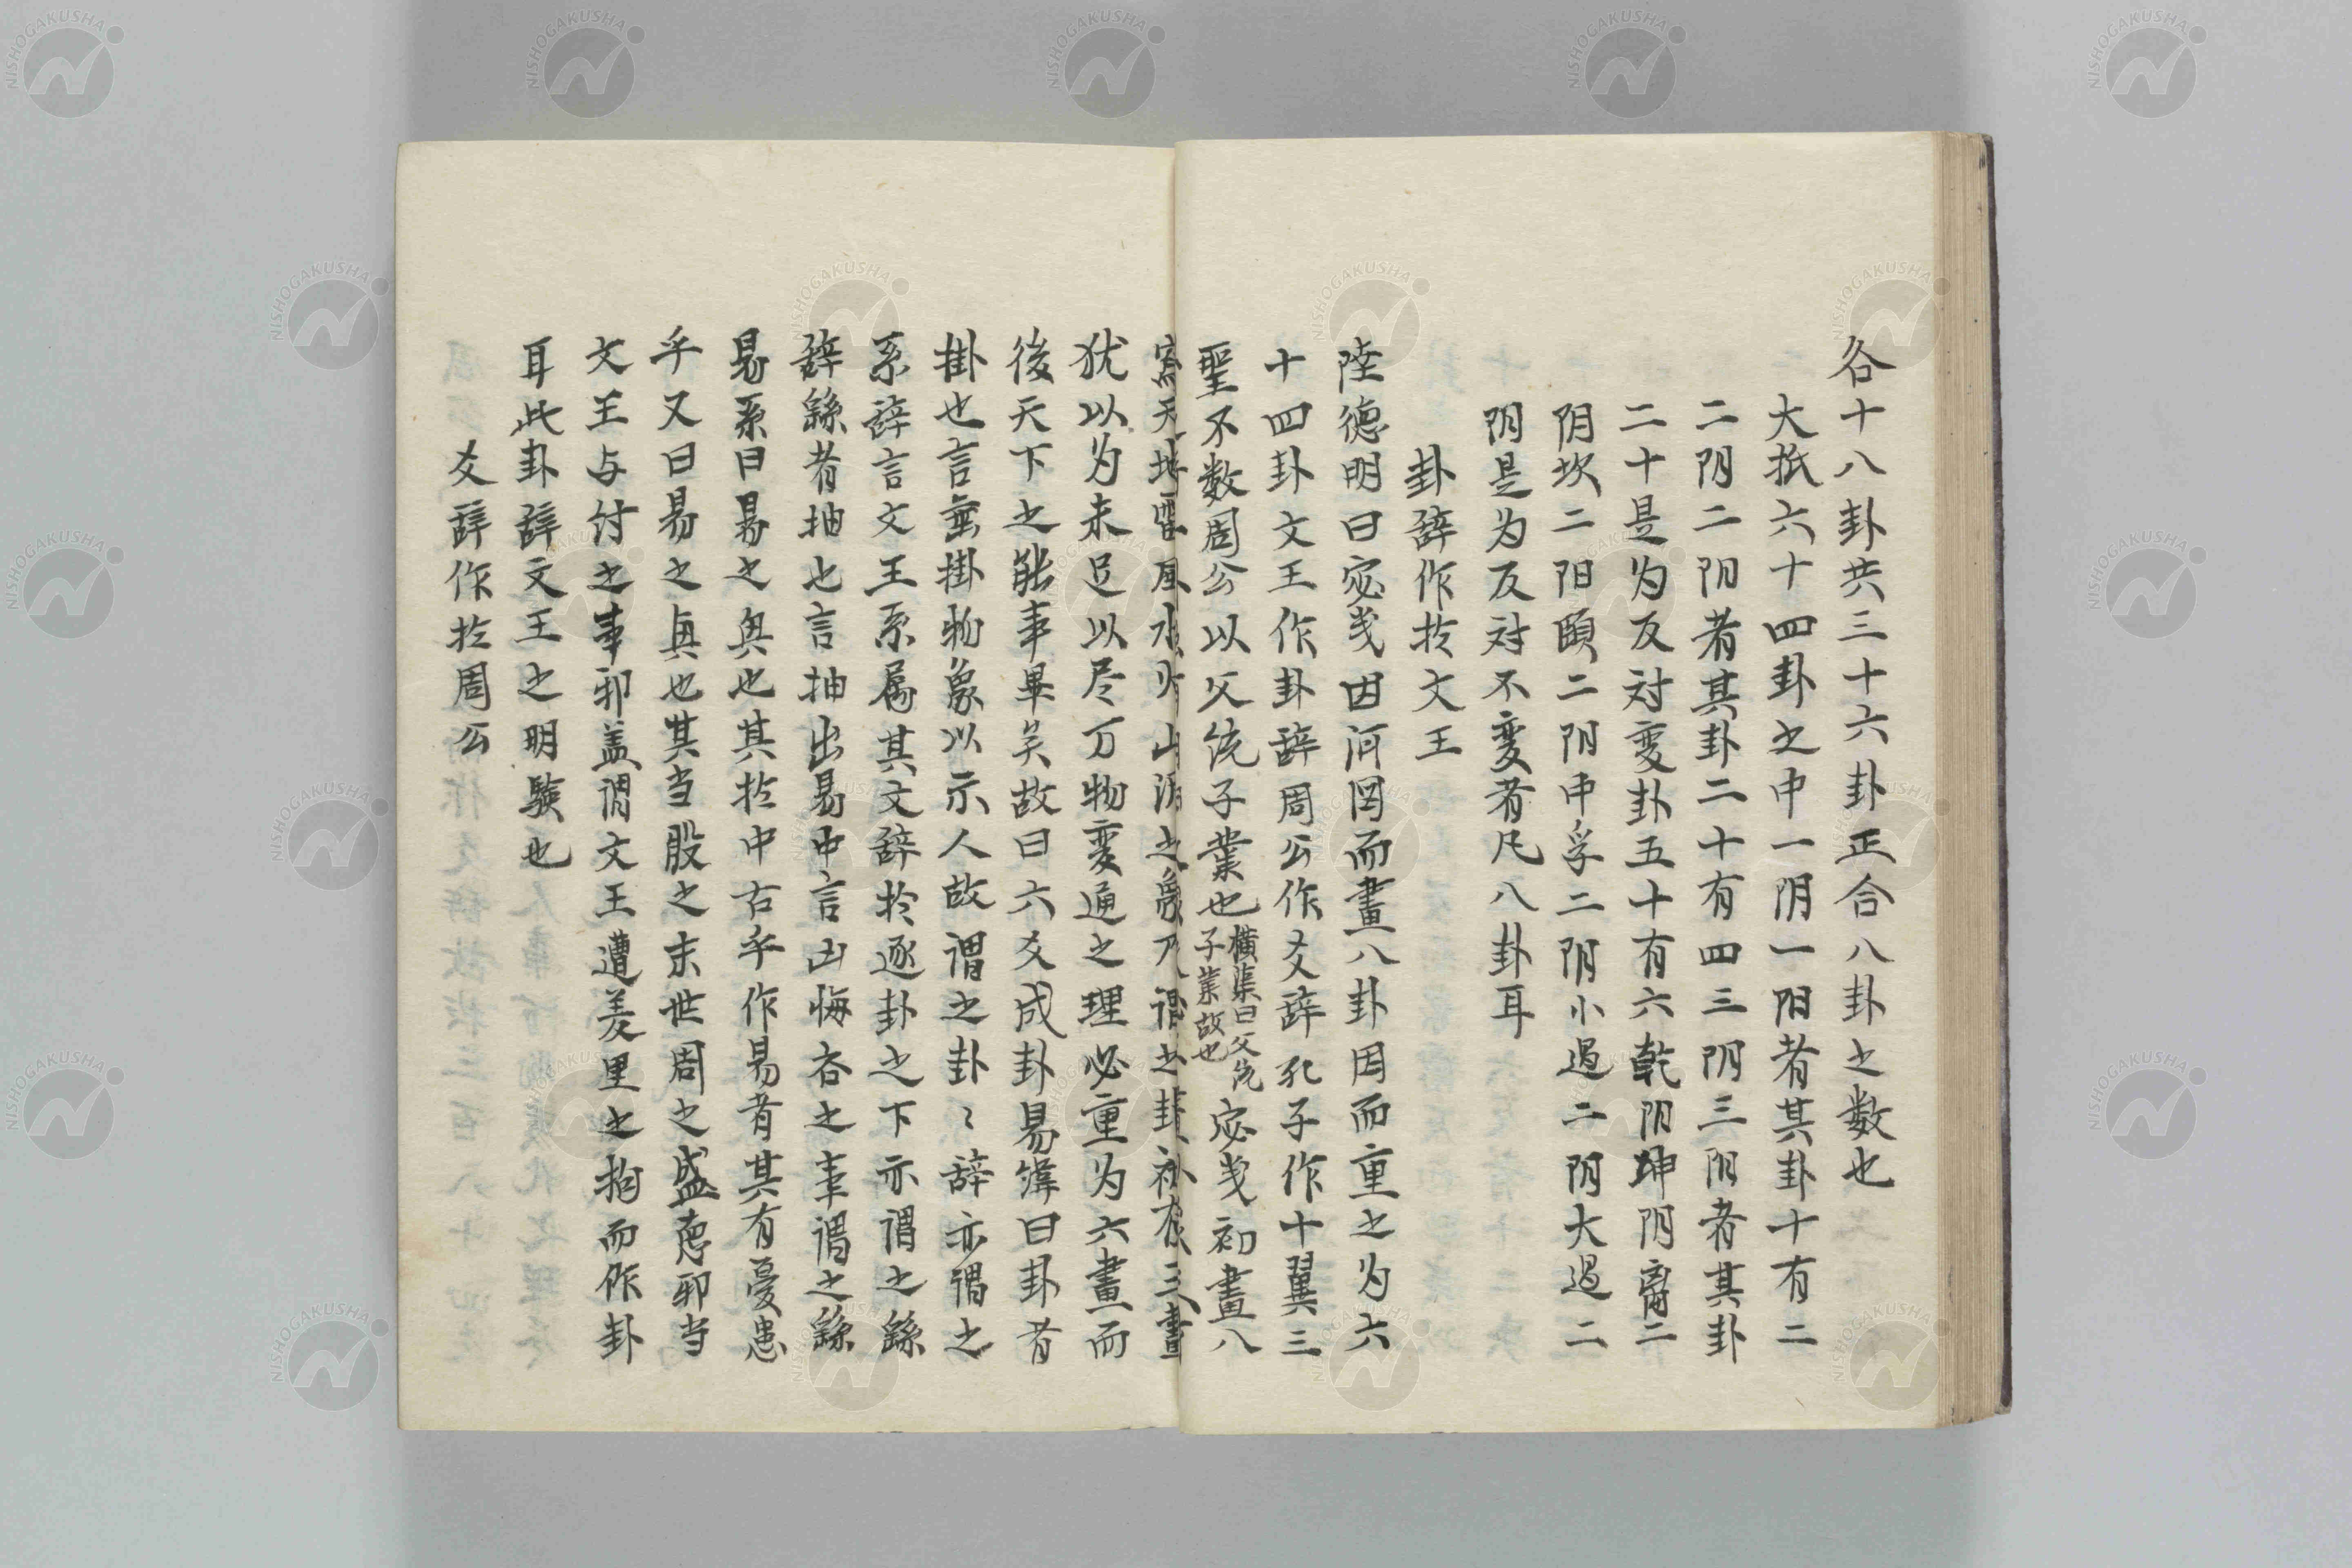 各十八卦共三十六卦正合八卦之数也
大抵六十四卦之中一阴一阳者其卦十有二
二阴二阳者其卦二十有四三阴三阳者其卦
二十是为反対変卦五十有六乾阴坤阴离二
阴坎二阳頤二阴中孚二阴小過二阴大過二
阴是为反対不変者凡八卦耳
卦辞作於文王
陸德明曰宓羲因河図而畫八卦因而重之为六
十四卦文王作卦辞周公作爻辞孔子作十翼三
聖不数周公以父統子業也
横渠曰父统
子業故也
宓羲初畫八
天地雷風水火山沢之象乃謂之卦初有三畫
犹以为未足以尽万物変通之理必重为六畫而
後天下之能事畢矣故曰六爻成卦易緯曰卦者
掛也言垂掛物象以示人故謂之卦〻辞亦謂之
系辞言文王系属其文辞於逐卦之下亦謂之繇
辞繇者抽也言抽出易中言凶悔吝之事謂之繇
易系曰易之興也其於中古乎作易者其有憂患
乎又曰易之興也其当殷之末世周之盛德邪当
文王与紂之事邪盖謂文王遭羑里之拘而作卦
耳此卦辞文王之明験也
爻辞作於周公
NISHOGAKUSHA